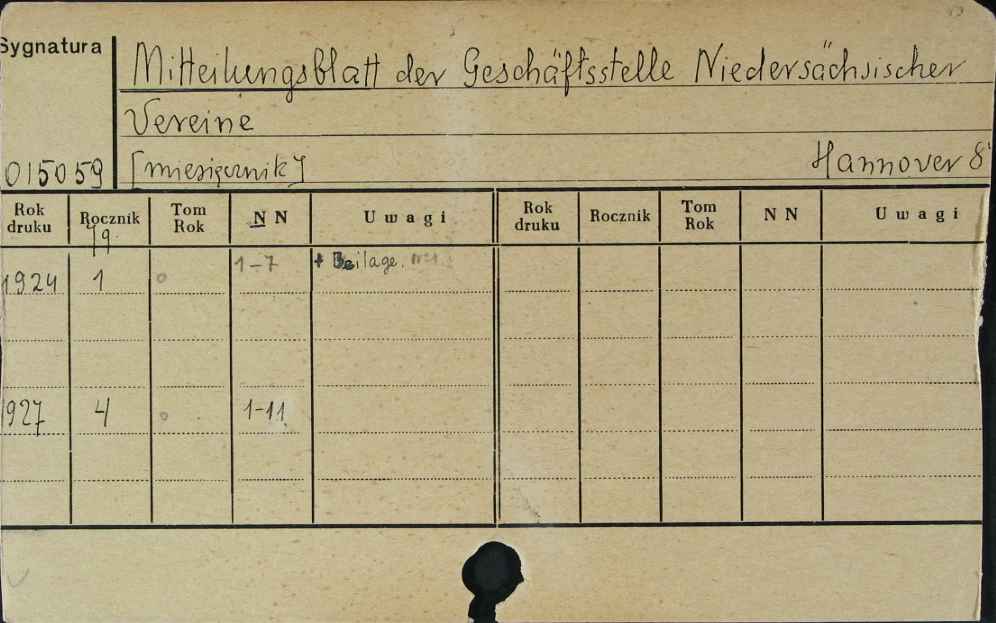 Sygnatura
Mitteilungsblatt der Geschäftsstelle Niedersächsischer
Vereine
015059 [miesięcznik] Hannover 8°
Rok druku Rocznik Tom Rok N N Uwagi Rok druku Rocznik Tom Rok N N Uwagi
Jg.
1924 1 ° 1-7 + Beilage.
1927 4 ° 1-11